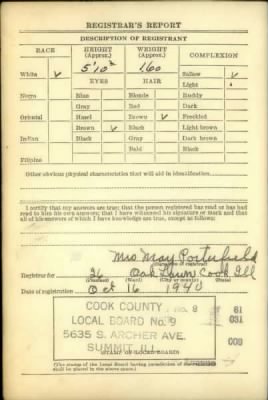 REGISTRAR'S REPORT
DESCRIPTION OF REGISTRANT
RACE HEIGHT (Approx.) WEIGHT (Approx.) COMPLEXION
White ✓ 5'10" 160 Sallow ✓
EYES HAIR Light
Negro Blue Blonde Ruddy
Gray Red Dark
Oriental Hazel Brown ✓ Freckled
Brown ✓ Black Light brown
Indian Black Gray Dark brown
Bald Black
Filipino
Other obvious physical characteristics that will aid in identification
I certify that my answers are true; that the person registered has read or has had
read to him his own answers; that I have witnessed his signature or mark and that
all of his answers of which I have knowledge are true, except as follows:
Mrs May Porterfield
Registrar for 26 Oak Lawn Cook Ill
(Precinct) (State)
Date of registration Oct 16 1940
COOK COUNTY NO. 9
LOCAL BOARD NO. 9
5635 S. ARCHER AVE.
SUMMIT, ILL.
STAMP OF LOCAL BOARD
(The stamp of the Local Board having jurisdiction of the registrant
shall be placed in the above space.)